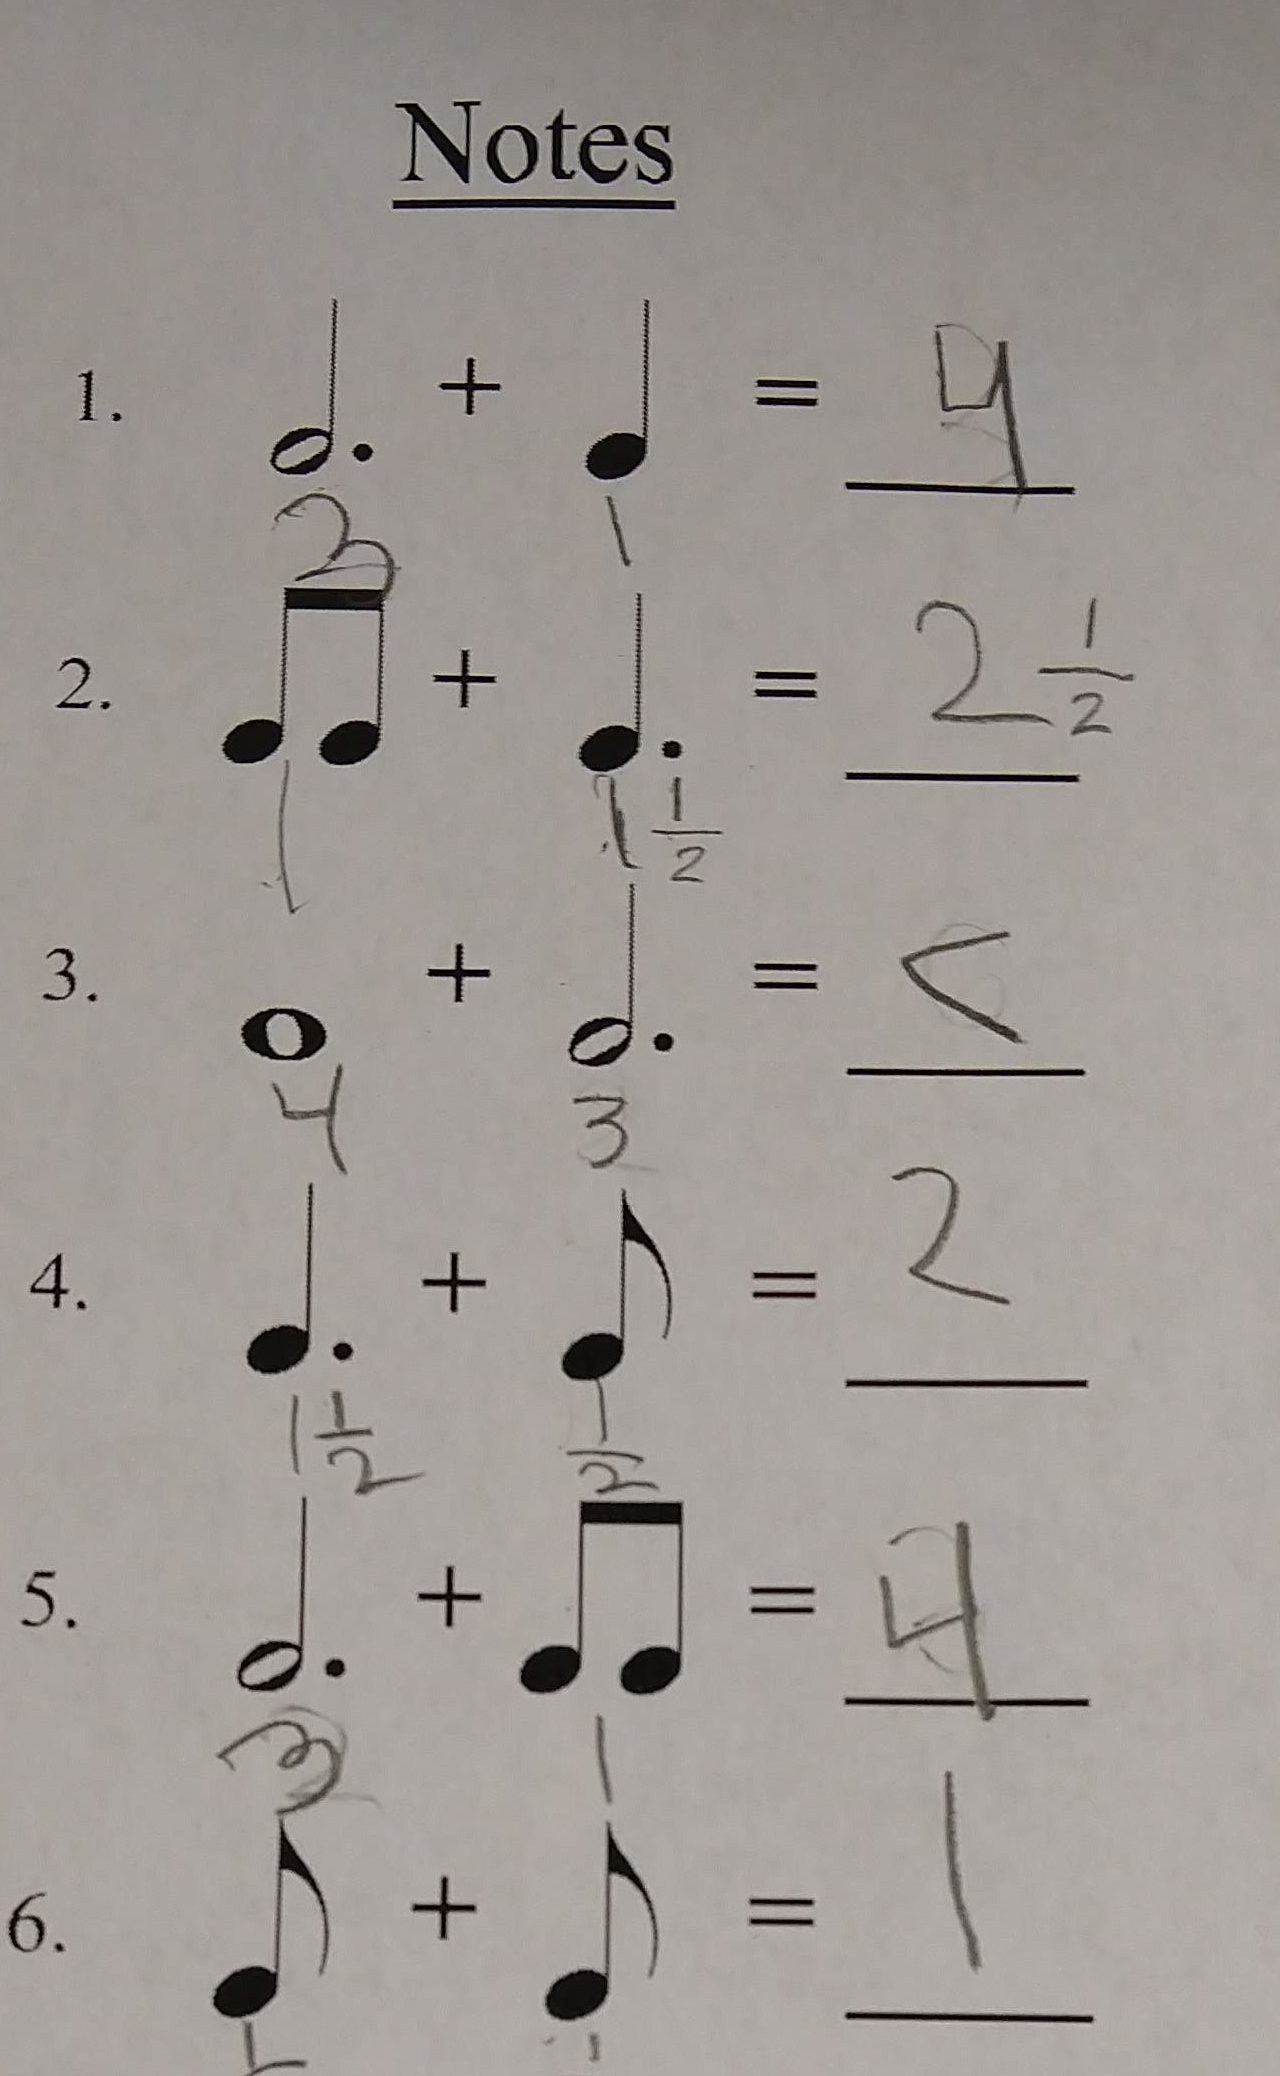 Notes
1. + = 4
3 1
2. + = 2 1/2
1 1 1/2
3. + = <
4 3
4. + = 2
1 1/2 1/2
5. + = 4
3 1
6. + = 1
1 1